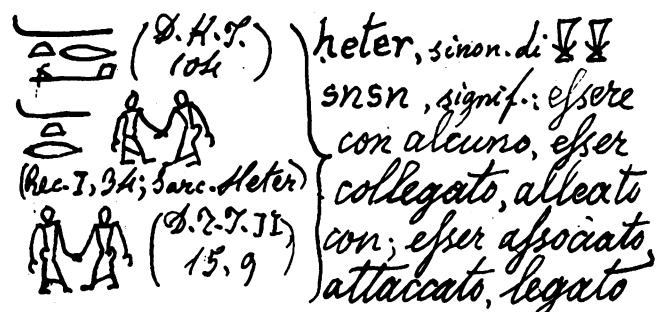 (D.H.T. 104)
(Rec. I, 34; Sarc. Heter)
(D.T.T. II, 15, 9)
heter, sinon. di
snsn, signif.: eſsere
con alcuno, eſser
collegato, alleato
con; eſser aſsociato,
attaccato, legato